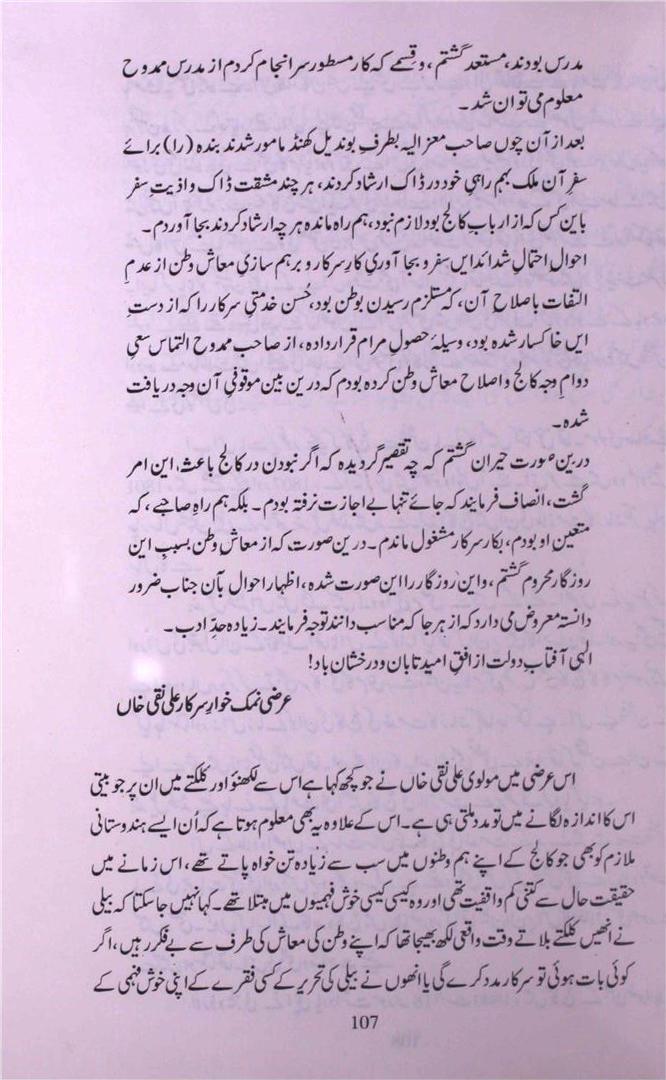 مدرس بودند، مستعد گشتم، و قسمے کہ کار مسطور سر انجام کردم از مدرس ممدوح
معلوم می توان شد۔
بعد از آن چوں صاحب معزالیہ بطرف بوندیل کھنڈ مامور شدند بندہ (را) برائے
سفرِ آن ملک بہم راہیِ خود در ڈاک ارشاد کردند، ہر چند مشقت ڈاک و اذیت سفر
باین کس کہ از ارباب کالج بود لازم نبود، ہم راہ ماندہ ہر چہ ارشاد کردند بجا آوردم۔
احوال احتمالِ شدائد ایں سفر و بجا آوریِ کارِ سرکار و برہم سازیِ معاش وطن از عدمِ
التفات باصلاح آن، کہ مستلزم رسیدن بوطن بود، حُسن خدمتیِ سرکار را کہ از دستِ
ایں خاکسار شدہ بود، وسیلۂ حصول مرام قرار دادہ، از صاحب ممدوح التماس سعیِ
دوام وجہ کالج و اصلاح معاش وطن کردہ بودم کہ درین بین موقوفیِ آن وجہ دریافت
شدہ۔
درین صورت حیران گشتم کہ چہ تقصیر گردیدہ کہ اگر نبودن در کالج باعث ایں امر
گشت، انصاف فرمایند کہ جائے تنہا بے اجازت نرفتہ بودم۔ بلکہ ہم راہِ صاحبے، کہ
متعین او بودم، بکار سرکار مشغول ماندم۔ درین صورت کہ از معاش وطن بسببِ این
روزگار محروم گشتم، و این روزگار را این صورت شدہ، اظہار احوال بآن جناب ضرور
دانستہ معروض می دارد کہ از ہر جا کہ مناسب دانند توجہ فرمایند۔ زیادہ حدِ ادب۔
الٰہی آفتابِ دولت از افقِ امید تابان و درخشان باد!
عرضی نمک خوار سرکار علی نقی خاں
اس عرضی میں مولوی علی نقی خاں نے جو کچھ کہا ہے اس سے لکھنؤ اور کلکتے میں ان پر جو بیتی
اس کا اندازہ لگانے میں تو مدد ملتی ہی ہے۔ اس کے علاوہ یہ بھی معلوم ہوتا ہے کہ اُن ایسے ہندوستانی
ملازم کو بھی جو کالج کے اپنے ہم وطنوں میں سب سے زیادہ تن خواہ پاتے تھے، اس زمانے میں
حقیقت حال سے کتنی کم واقفیت تھی اور وہ کیسی کیسی خوش فہمیوں میں مبتلا تھے۔ کہا نہیں جا سکتا کہ بیلی
نے انھیں کلکتے بلاتے وقت واقعی لکھ بھیجا تھا کہ اپنے وطن کی معاش کی طرف سے بے فکر رہیں، اگر
کوئی بات ہوئی تو سرکار مدد کرے گی یا انھوں نے بیلی کی تحریر کے کسی فقرے کے اپنی خوش فہمی کے
107